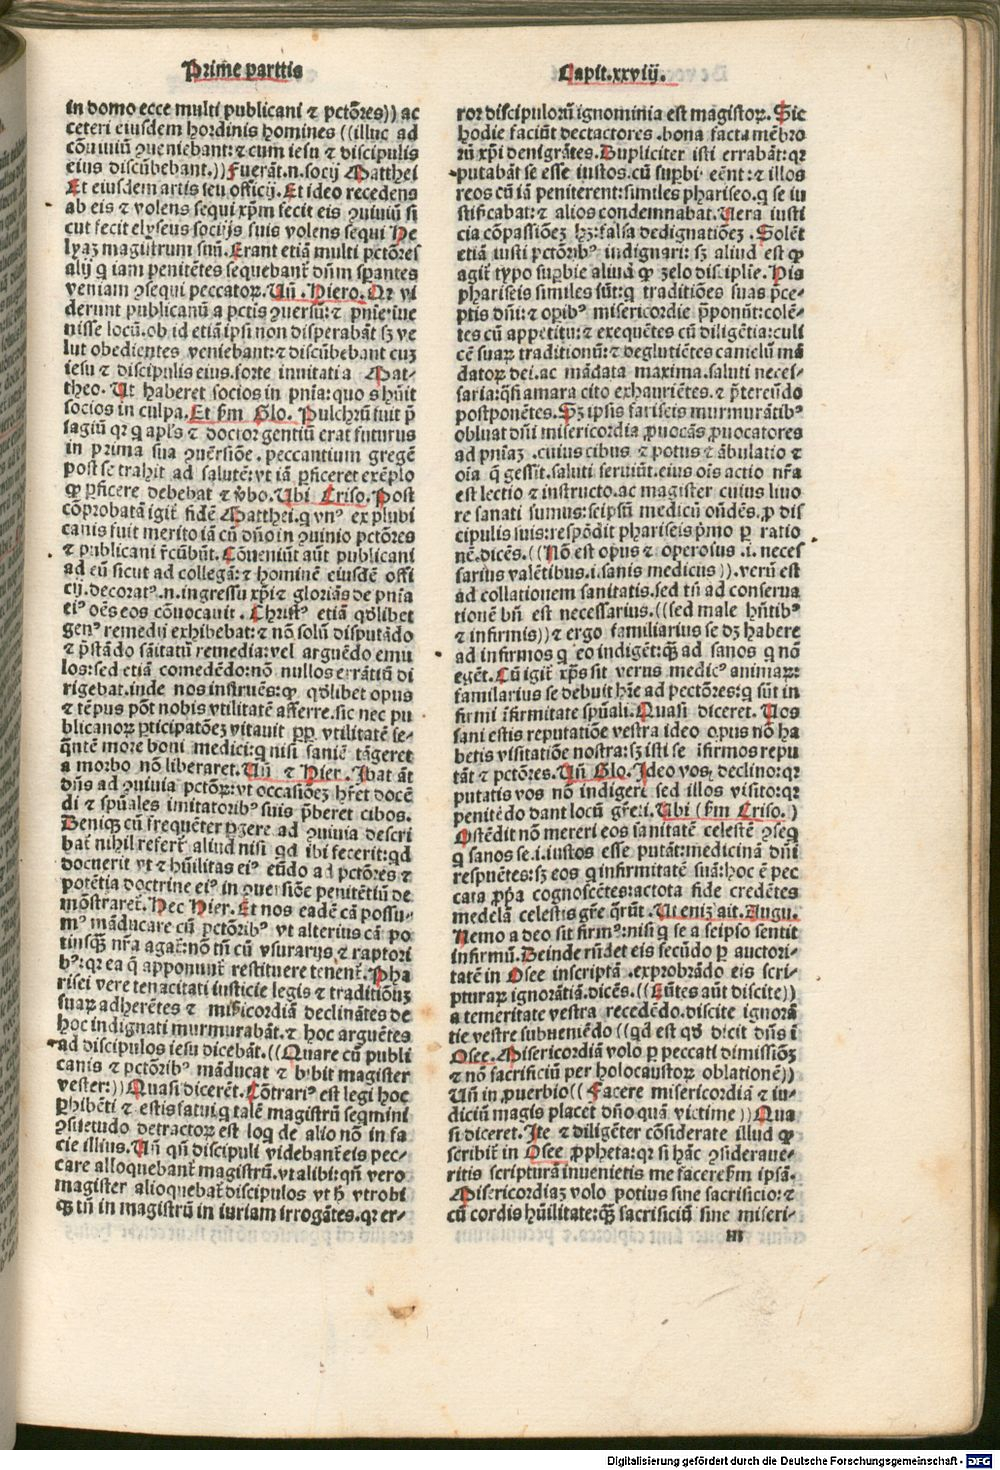 Prime parttis
Capit.xxviĳ.
in domo ecce multi publicani ⁊ pctōres)) ac
ceteri eiusdem hordinis homines ((illuc ad
cōuiuiū ꝯueniebant:⁊ cum iesu ⁊ discipulis
eius discūbebant.)) Fuerāt.n.socij Matthei
Et eiusdem artis seu officij. Et ideo recedens
ab eis ⁊ volens sequi xp̄m fecit eis ꝯuiuiū si
cut fecit elyseus socijs suis volens sequi He
lyaʒ magistrum suū. Erant etiā multi pctōres
alij q iam penitētes sequebant᷑ dn̄m spantes
veniam ꝯsequi peccatoꝝ. Un̄ . Hiero. Qꝛ vi
derunt publicanū a pctis ꝯuersū:⁊ pnīe inue
nisse locū.ob id etiā ipsi non disperabāt sʒ ve
lut obedientes veniebant:⁊ discūbebant cuʒ
iesu ⁊ discipulis eius.forte inuitati a Mat-
theo. Ut haberet socios in pnīa:quo s hūit
socios in culpa. Et fm̄ Glo. Pulchrū fuit p̄
sagiū qꝛ q apl's ⁊ doctor gentiū erat futurus
in prima sua ꝯuersiōe.peccantium gregē
post se trahit ad salutē:vt iā ꝑficeret exēplo
ꝙ ꝑficere debebat ⁊ v̄bo. Ubi Criso. Post
cōprobatā igit᷑ fidē Matthei.q vnꝰ ex plubi
canis fuit merito iā cū dn̄o in ꝯuinio pctōres
⁊ publicani r̄cūbūt. Cōueniūt aūt publicani
ad eū sicut ad collegā:⁊ hominē eiusdē offi
cij.decoratꝰ.n.ingressu xp̄i ⁊ gloriās de pnīa
eiꝰ oēs eos cōuocauit . Christꝰ etiā qd̄libet
genꝰ remedii exhibebat:⁊ nō solū disputādo
⁊ p̄stādo sāitatū remedia:vel arguēdo emu
los:sed etiā comedēdo:nō nullos errātiū di
rigebat.inde nos instruēs:ꝙ qd̄libet opus
⁊ tēpus pōt nobis vtilitatē afferre.sic nec pu
blicanoꝝ ꝑticipatōeʒ vitauit ꝓp̄ vtilitatē se-
q̄ntē more boni medici:q nisi saniē tāgeret
a morbo nō liberaret. Un̄ ⁊ Hier. Ibat āt
dn̄s ad ꝯuiuia pctōꝝ:vt occasiōeʒ hr̄et docē
di ⁊ spūales imitatoribꝰ suis p̄beret cibos.
Deniqꝫ cū frequēter ꝑgere ad ꝯuiuia descri
bat᷑ nihil refert᷑ aliud nisi qd ibi fecerit:qd
docuerit vt ⁊ hūilitas eiꝰ eūdo ad pctōres ⁊
potētia doctrine eiꝰ in ꝯuersiōe penitētiū de
mōstraret᷑. Hec Hier. Et nos eadē cā possu-
mꝰ māducare cū pctōribꝰ vt alterius cā po
tiusqꝫ nr̄a agat᷑:nō tn̄ cū vsurarijs ⁊ raptori
bꝰ:qꝛ ea q̄ apponunt᷑ restituere tenent᷑. Pha
risei vere tenacitati iusticie legis ⁊ traditiōuʒ
suaꝝ adherētes ⁊ mīsericordiā declinātes de
hoc indignati murmurabāt.⁊ hoc arguētes
ad discipulos iesu dicebāt.((Quare cū publi
canis ⁊ pctōribꝰ māducat ⁊ bibit magister
vester:)) Quasi dicerēt. Cōtrariꝰ est legi hoc
ꝑhibēti ⁊ estis fatui q talē magistrū seqmini
ꝯsuetudo detractoꝝ est loq de alio nō in fa
cie illius. Un̄ qn̄ discipuli videbant᷑ eis pec-
care alloquebant᷑ magistrū.vt alibi:qn̄ vero
magister alioquebat᷑ discipulos vt h̄ vtrobi
qꝫ tn̄ in magistrū in iuriam irrogātes.qꝛ er-
ror discipulorū ignominia est magistoꝝ. Sic
hodie faciūt dectactores .bona facta mēbro
rū xp̄i denigrātes. Dupliciter isti errabāt:qꝛ
putabāt se esse iustos.cū suꝑbi eēnt:⁊ illos
reos cū iā peniterent:similes phariseo.q se iu
stificabat:⁊ alios condemnabat. Uera iusti
cia cōpassiōeʒ hʒ:falsa dedignatiōeʒ . Solēt
etiā iusti pctōribꝰ indignari: sʒ aliud est ꝙ
agit᷑ typo suꝑbie aliud ꝙ zelo disciplie. His
phariseis similes sūt:q traditiōes suas p̄ce-
ptis dn̄i:⁊ opībꝰ misericordie p̄ponūt:colē-
tes cū appetitu:⁊ exequētes cū diligētia:culi
cē suaꝝ traditionū:⁊ deglutiētes camelū mā
datoꝝ dei.ac mādata maxima.saluti neces-
saria:q̄si amara cito exhauriētes.⁊ p̄tereūdo
postponētes. Sʒ ipsis fariseis murmurātibꝰ
obluat dn̄i misericordia ꝓuocās ꝓuocatores
ad pnīaʒ .cuius cibus ⁊ potus ⁊ ābulatio ⁊
oīa q̄ gessit.saluti seruiūt.eius oīs actio nr̄a
est lectio ⁊ instructo.ac magister cuius liuo
re sanati sumus:seipsū medicū ondēs.ꝓ dis
cipulis suis:respōdit phariseis p̄mo ꝑ ratio
nē.dicēs.((Nō est opus ⁊ operosus .i. neces
sarius valētibus.i.sanis medicus)).verū est
ad collationem sanitatis.sed tn̄ ad conserua
tionē bn̄ est necessarius.((sed male hn̄tibꝰ
⁊ infirmis))⁊ ergo familiarius se dʒ habere
ad infirmos q eo indigēt:qꝫ ad sanos q nō
egēt. Cū igit᷑ xp̄s sit verus medicꝰ animaꝝ:
familarius se debuit hr̄e ad pectōres:q sūt in
firmi īfirmitate spūali. Quasi diceret. Uos
sani estis reputatiōe vestra ideo opus nō ha
betis visitatiōe nostra:sʒ isti se īfirmos repu
tāt ⁊ pctōres. Un̄ Glo. Ideo vos declino:qꝛ
putatis vos nō indigeri sed illos visito:qꝛ
penitēdo dant locū gr̄e:i. Ubi (fm̄ Criso.)
Ostēdit nō mereri eos sanitatē celestē ꝯseq
q sanos se.i.iustos esse putāt:medicinā dn̄i
respuētes:sʒ eos q infirmitatē suā:hoc ē pec
cata ꝓpa cognoscētes:actota fide credētes
medelā celestis gr̄e q̄rūt. Ut eniʒ ait. Augu.
Nemo a deo sit firmꝰ:nisi q se a seipso sentit
infirmū. Deinde rn̄det eis secūdo ꝑ auctori-
tatē in Osee inscriptā .exprobrādo eis scri-
pturaꝝ ignorātiā.dicēs.((Eūtes aūt discite))
a temeritate vestra recedēdo.discite ignorā
tie vestre subueniēdo ((qd est qd̄ dicit dn̄s ī
Osee. Misericordiā volo ꝑ peccati dimissiōʒ
⁊ nō sacrificiū per holocaustoꝝ oblationē))
Un̄ in ꝓuerbio((Facere misericordiā ⁊ iu-
diciū magis placet dn̄o quā victime)) Qua
si diceret. Ite ⁊ diligēter cōsiderate illud ꝙ
scribit᷑ in Osee ꝓpheta:qꝛ si hāc ꝯsideraue-
ritis scripturā inuenietis me facere fm̄ ipsā.
Misericordiaʒ volo potius sine sacrificio:⁊
cū cordis hūilitate:qꝫ sacrificiū sine miseri-
m
Digitalisierung gefördert durch die Deutsche Forschungsgemeinschaft - DFG